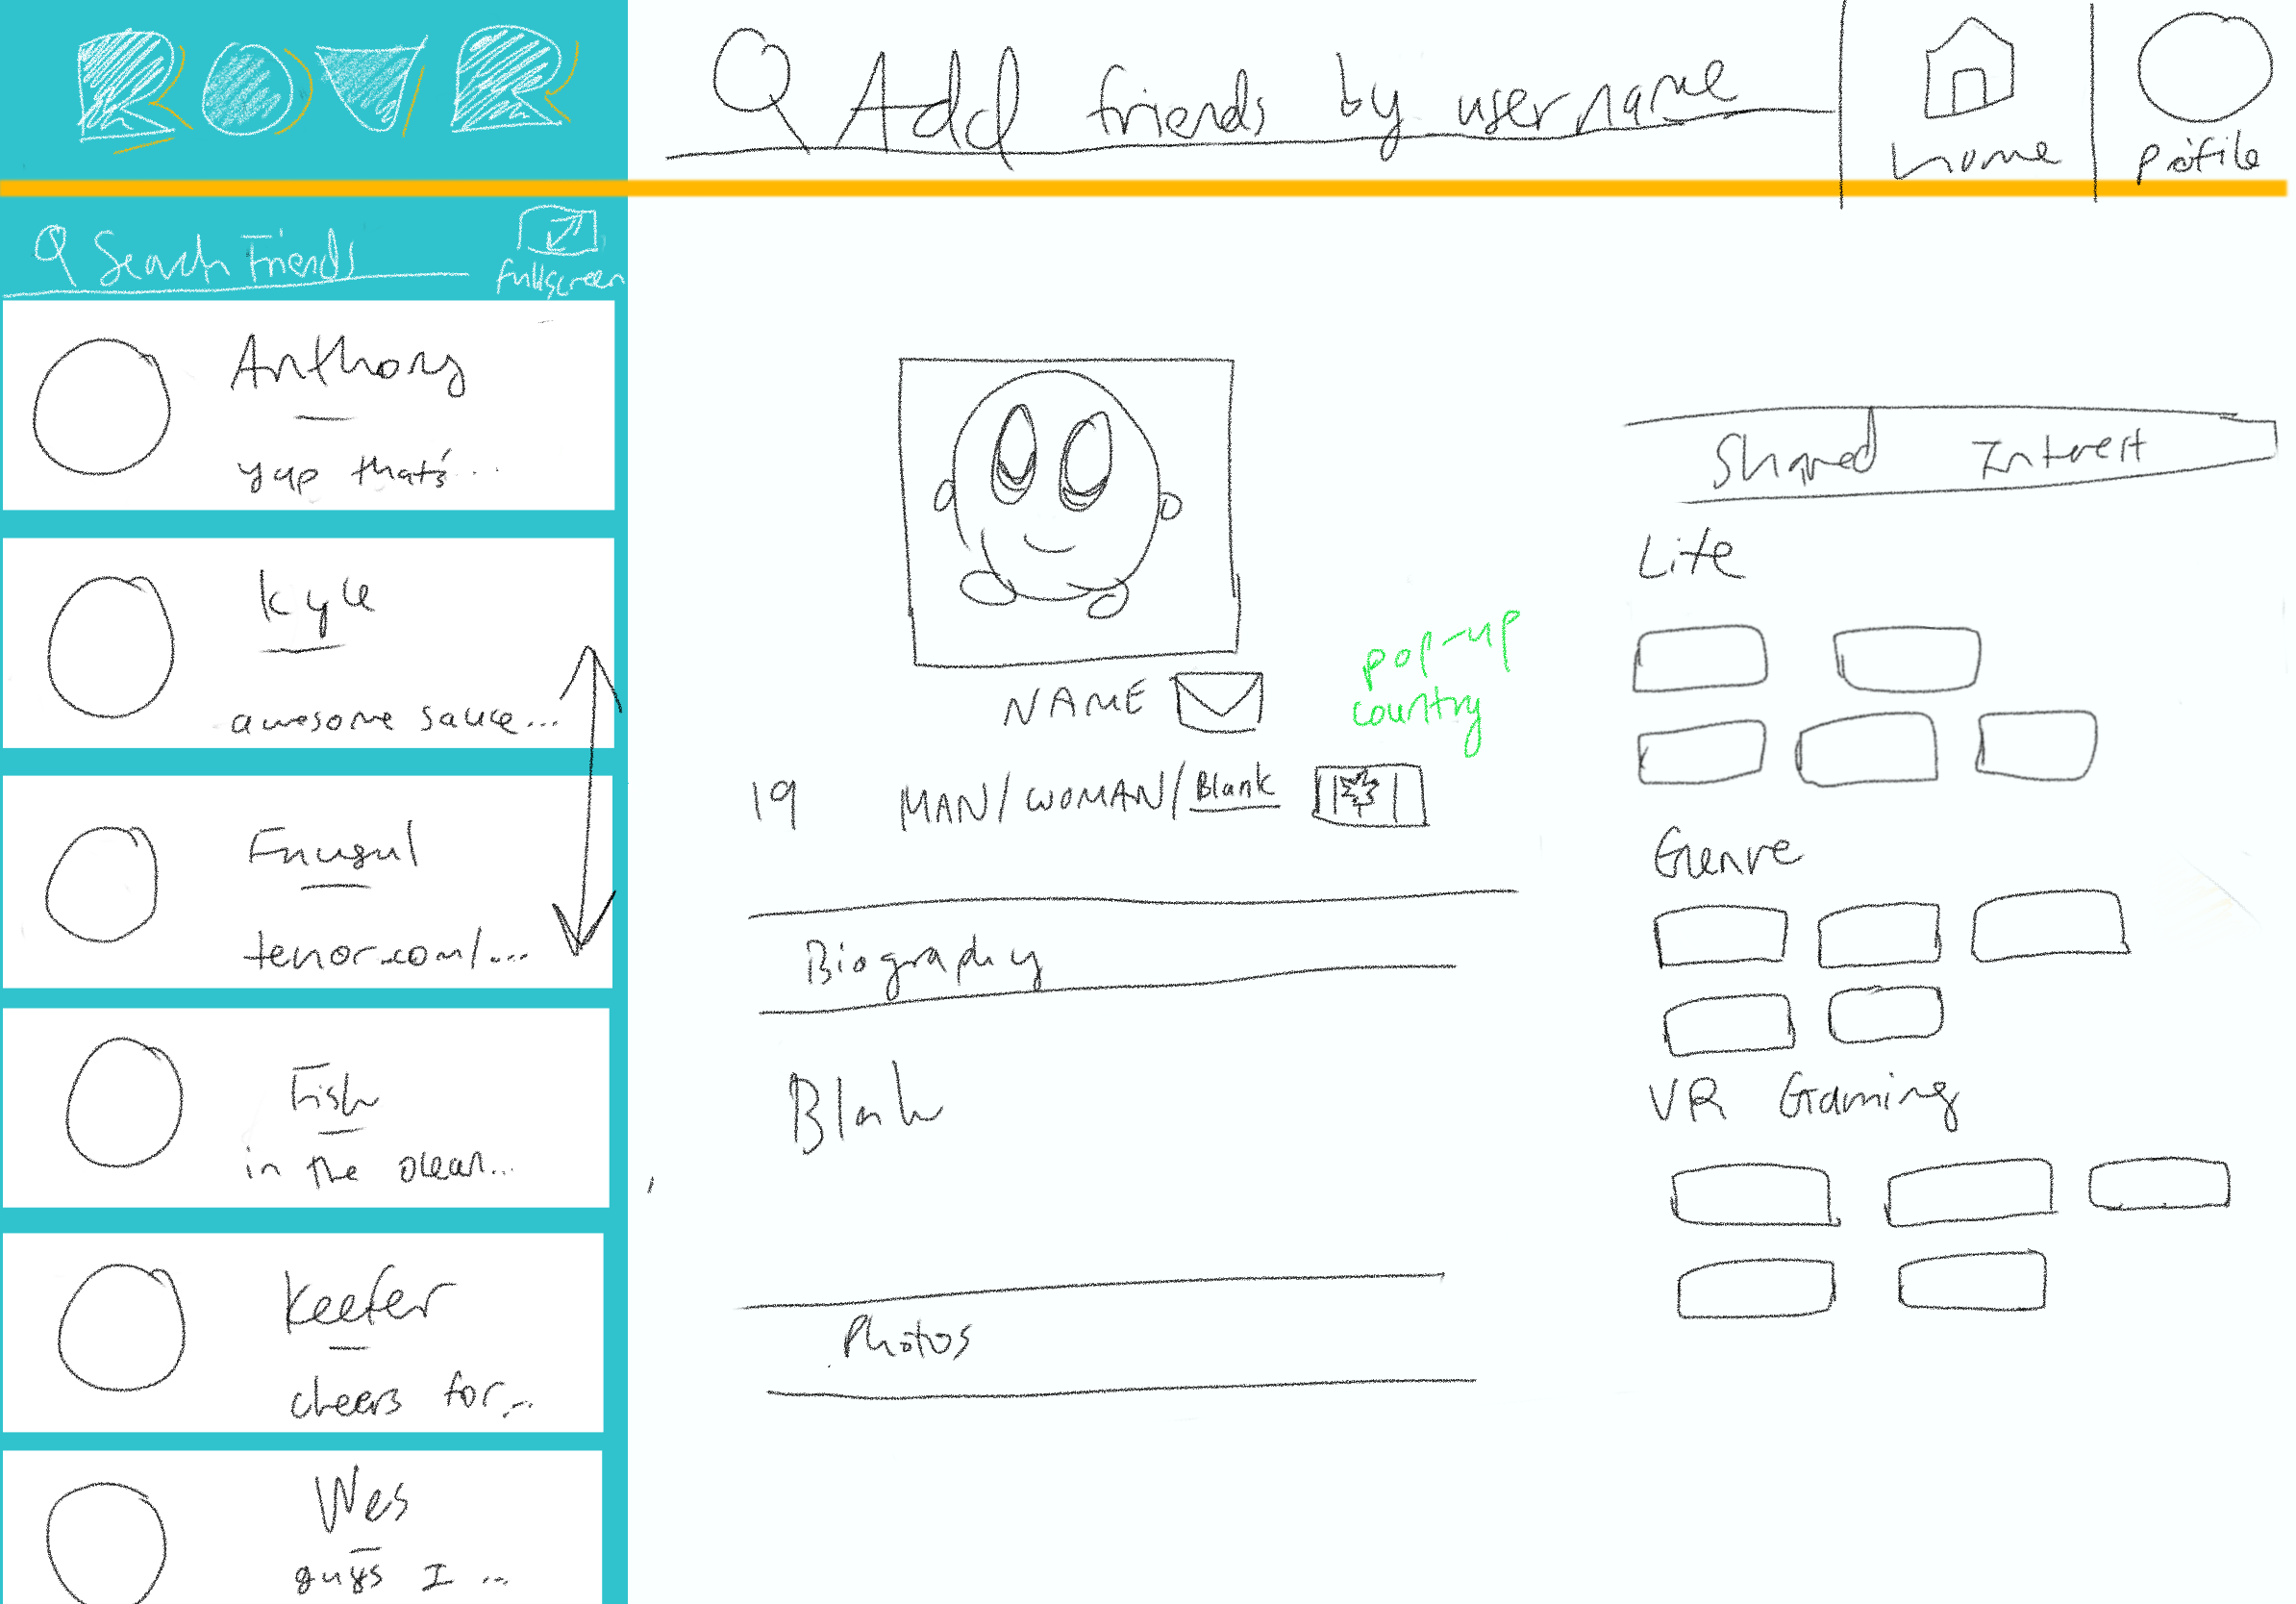 ROVR
Add friends by username
home
profile
Search Friends
fullscreen
Anthony
yap that's...
Kyle
awesome sauce...
tenor.com/...
Fish
in the ocean...
Keefer
cheers for...
Wes
guys I ...
NAME
pop-up
country
19 MAN/WOMAN/Blank
Biography
Blank
Photos
Shared Interest
Life
Genre
VR Gaming